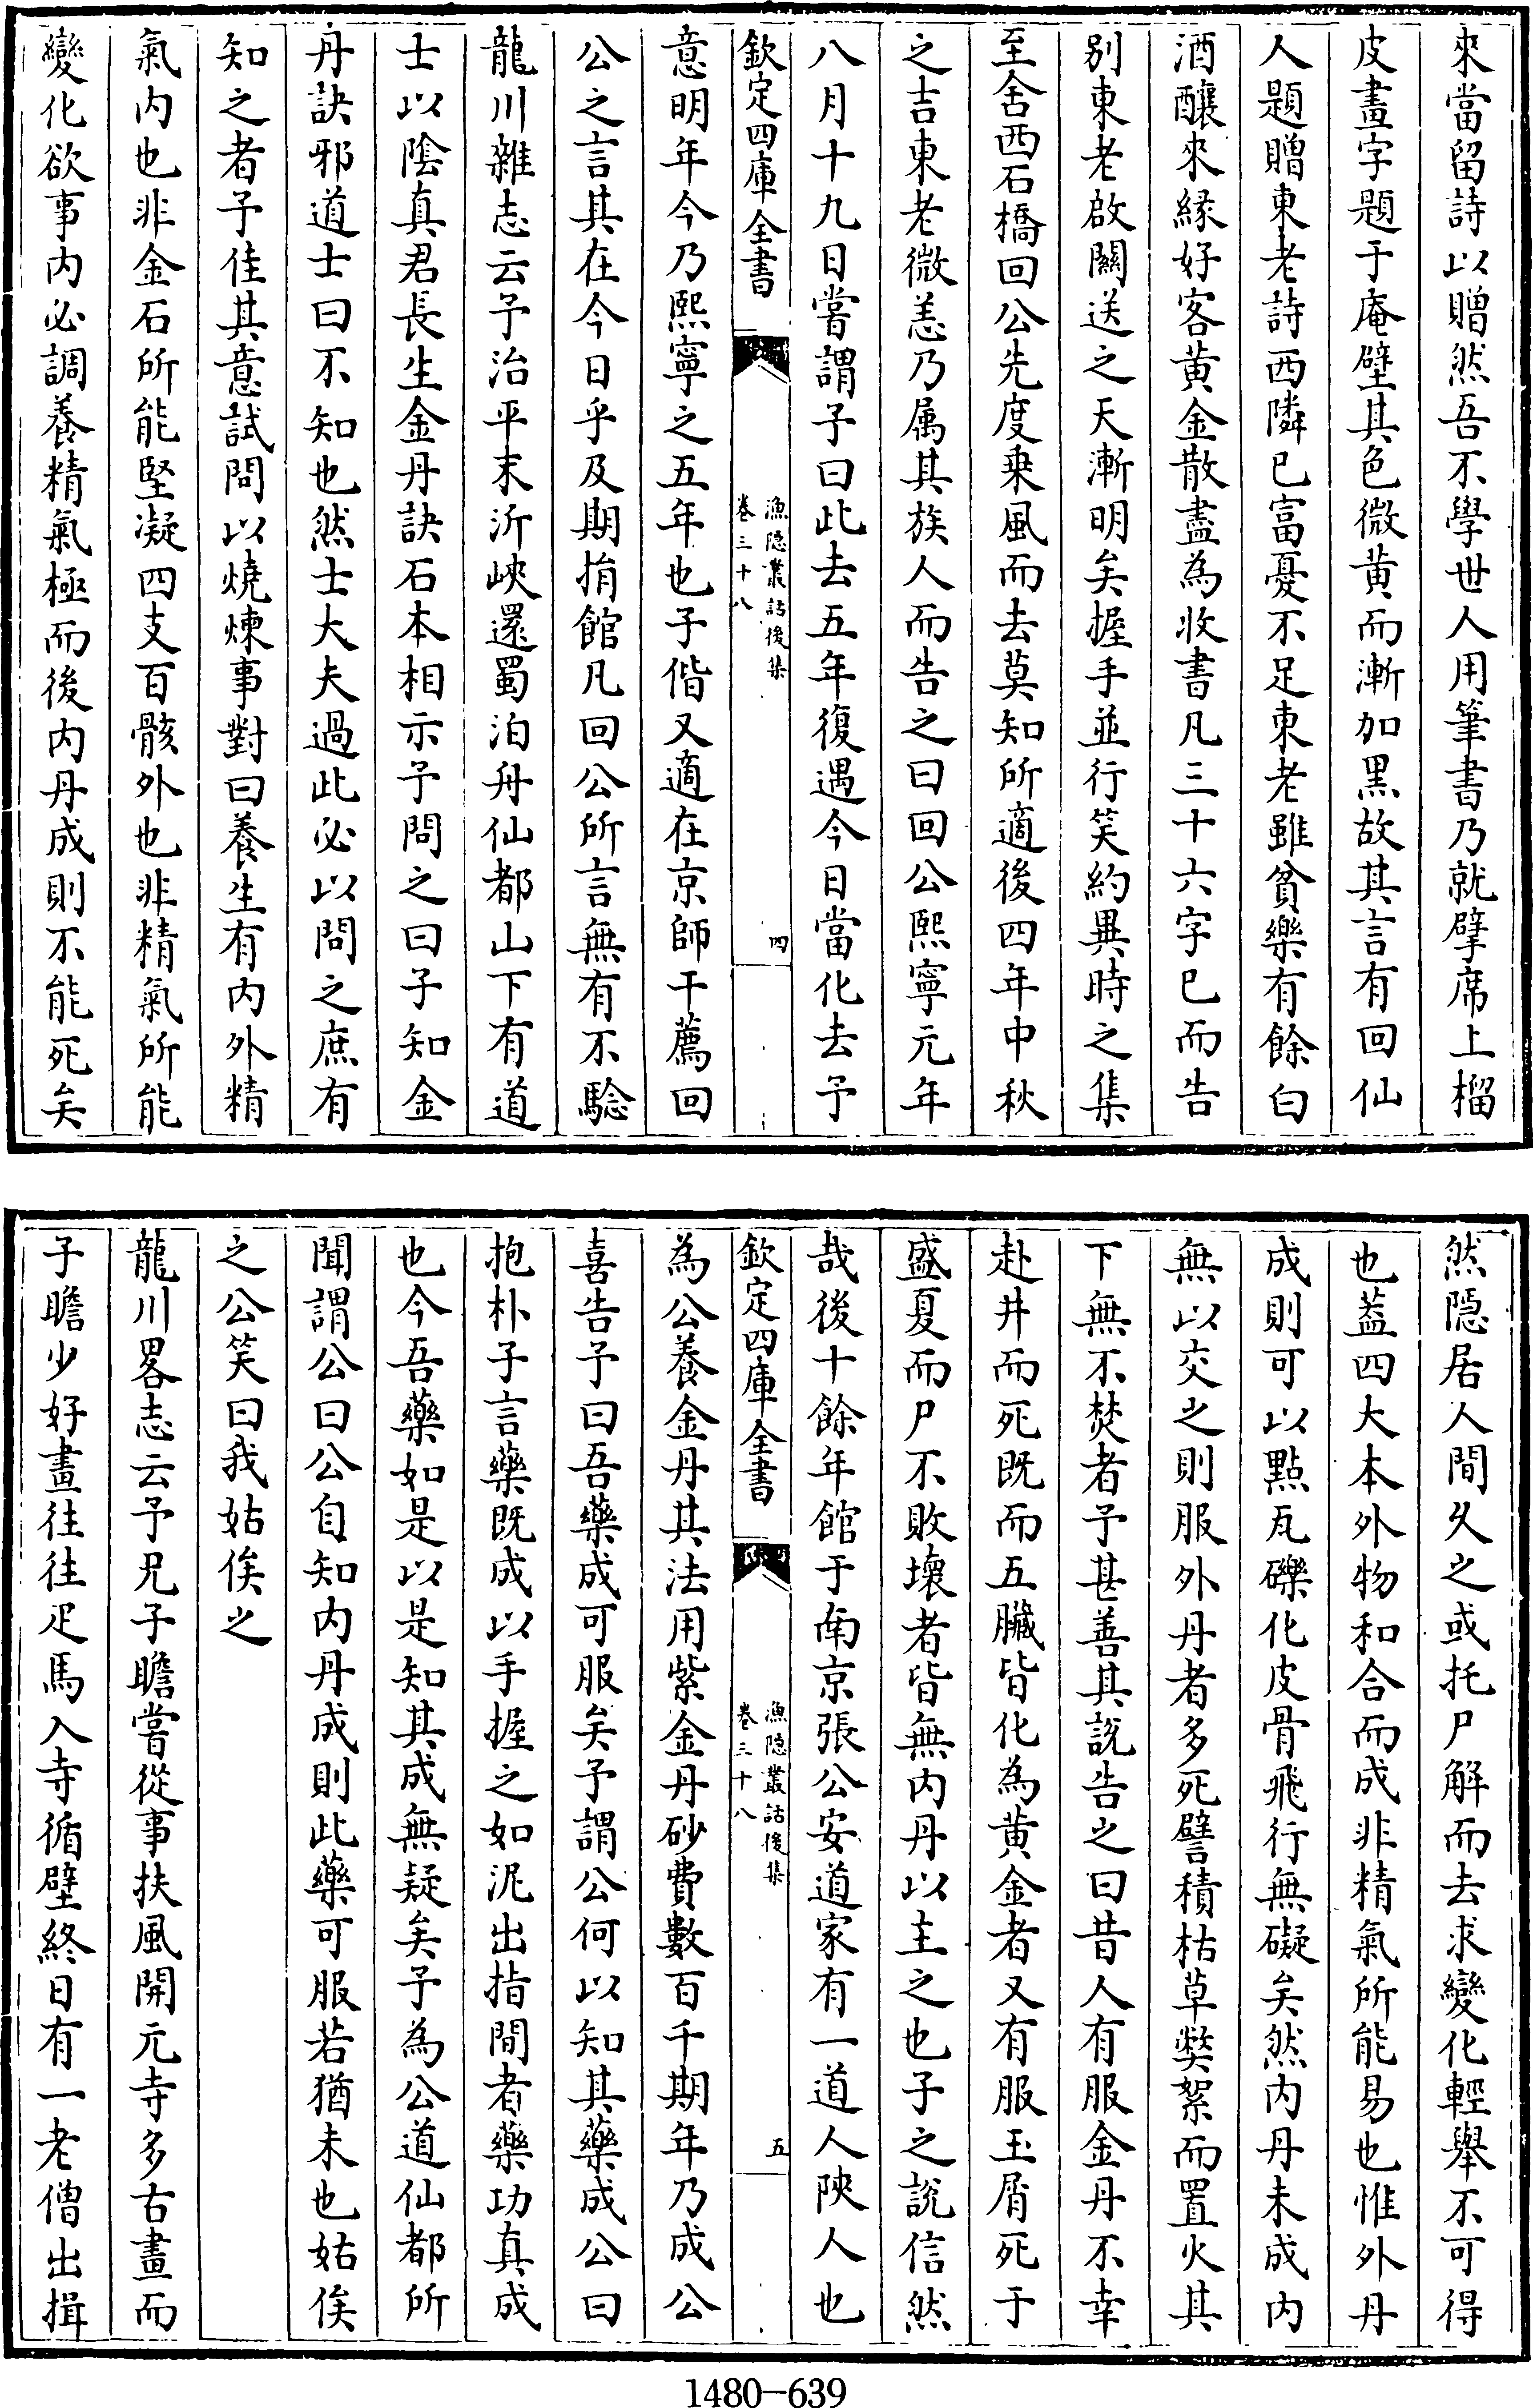 來當留詩以贈然吾不學世人用筆書乃就擘席上榴
皮畫字題于庵壁其色微黄而漸加黑故其言有回仙
人題贈東老詩西隣已富憂不足東老雖貧樂有餘白
酒釀來緣好客黄金散盡為收書凡三十六字已而告
别東老啟關送之天漸明矣握手並行笑約異時之集
至舍西石橋回公先度乘風而去莫知所適後四年中秋
之吉東老微恙乃属其族人而告之曰回公熙寧元年
八月十九日嘗謂予曰此去五年復遇今日當化去予
欽定四庫全書
漁隠叢話後集
卷三十八
四
意明年今乃熙寧之五年也子偕又適在京師干薦回
公之言其在今日乎及期捐館凡回公所言無有不驗
龍川雜志云予治平末泝峽還蜀泊舟仙都山下有道
士以隂真君長生金丹訣石本相示予問之曰子知金
丹訣邪道士曰不知也然士大夫過此必以問之庶有
知之者予佳其意試問以燒煉事對曰養生有内外精
氣内也非金石所能堅凝四支百骸外也非精氣所能
變化欲事内必調養精氣極而後内丹成則不能死矣
然隠居人間久之或托尸解而去求變化輕舉不可得
也葢四大本外物和合而成非精氣所能易也惟外丹
成則可以點瓦礫化皮骨飛行無礙矣然内丹未成内
無以交之則服外丹者多死譬積枯草獘絮而置火其
下無不焚者予甚善其說告之曰昔人有服金丹不幸
赴井而死既而五臟皆化為黄金者又有服玉屑死于
盛夏而尸不敗壞者皆無内丹以主之也子之說信然
哉後十餘年館于南京張公安道家有一道人陜人也
欽定四庫全書
漁隠叢話後集
卷三十八
五
為公養金丹其法用紫金丹砂費數百千期年乃成公
喜告予曰吾藥成可服矣予謂公何以知其藥成公曰
抱朴子言藥既成以手握之如泥出指間者藥功真成
也今吾藥如是以是知其成無疑矣予為公道仙都所
聞謂公曰公自知内丹成則此藥可服若猶未也姑俟
之公笑曰我姑俟之
龍川畧志云予兄子瞻嘗從事扶風開元寺多古畫而
子瞻少好畫往往疋馬入寺循壁終日有一老僧出揖
1480-639